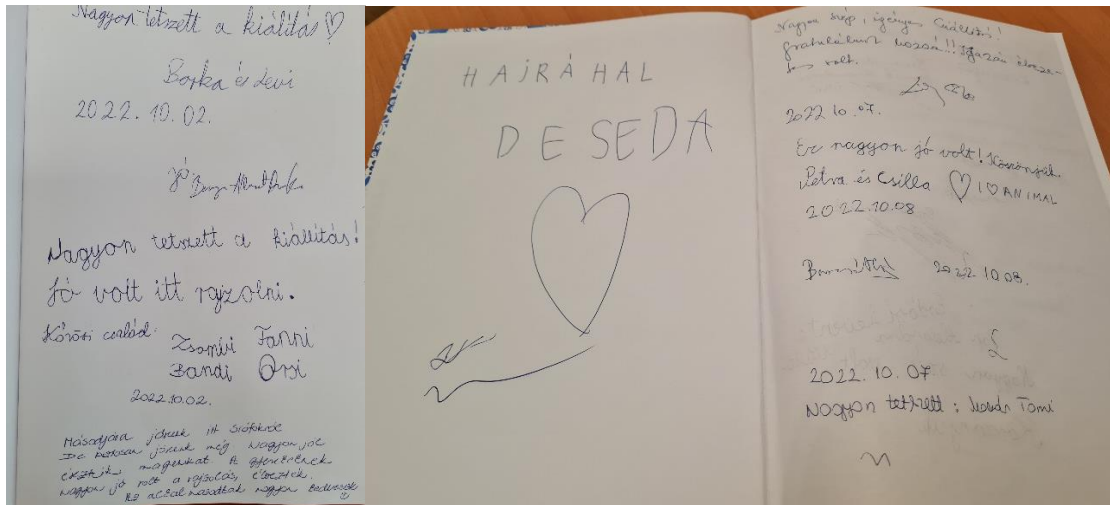 Nagyon tetszett a kiálitás ♡
Borka és Levi
2022. 10. 02.
jó
Nagyon tetszett a kiállitás!
Jó volt itt rajzolni.
Kőrösi család:
Zsombi Fanni
Bandi Orsi
2022.10.02.
Másodjára jönünk itt Siófokról
De biztosan jövünk még. Nagyon jól
éreztük magunkat. A gyerekeknek
nagyon jó volt a rajzolás, élvezték.
Az állatok nagyon
HAJRÁ HAL
DESEDA
Nagyon szép, igényes kiállítás!
Gratulálunk hozzá!!! Igazán élveze-
tes volt.
2022 10. 07.
Ez nagyon jó volt! Köszönjük.
Petra és Csilla ♡ I ♡ ANIMAL
2022.10.08
2022 10.08.
2022. 10. 07.
Nagyon tetszett: Tomi